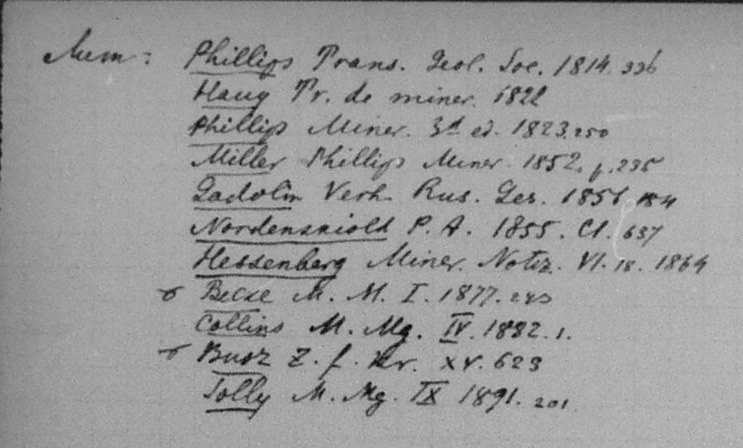 Phillips Trans. Geol. Soc. 1814. 336
Hauy Tr. de miner. 1822
Phillips Miner. 3d ed. 1823. 250
Miller Phillips Miner 1852. p. 235
Gadolin Verh. Rus. Ges. 1856 184
Nordenskiold P. A. 1855. CI. 637
Hessenberg Miner. Notiz. VI. 18. 1864
Becke M. M. I. 1877.
Collins M. Mg. IV. 1882. 1.
Busz Z. f. Kr. XV. 623
Solly M. Mg. IX 1891. 201